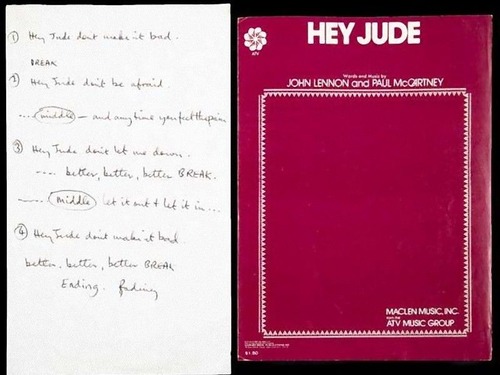 ① Hey Jude dont make it bad.
BREAK
② Hey Jude don't be afraid.
.... middle — and anytime you feel the pain
③ Hey Jude don't let me down.
---- better, better, better BREAK.
middle let it out & let it in...
④ Hey Jude dont make it bad
better, better, better BREAK
Ending. fading
ATV
HEY JUDE
Words and Music by
JOHN LENNON and PAUL McCARTNEY
MACLEN MUSIC, INC.
ATV MUSIC GROUP
$1.50